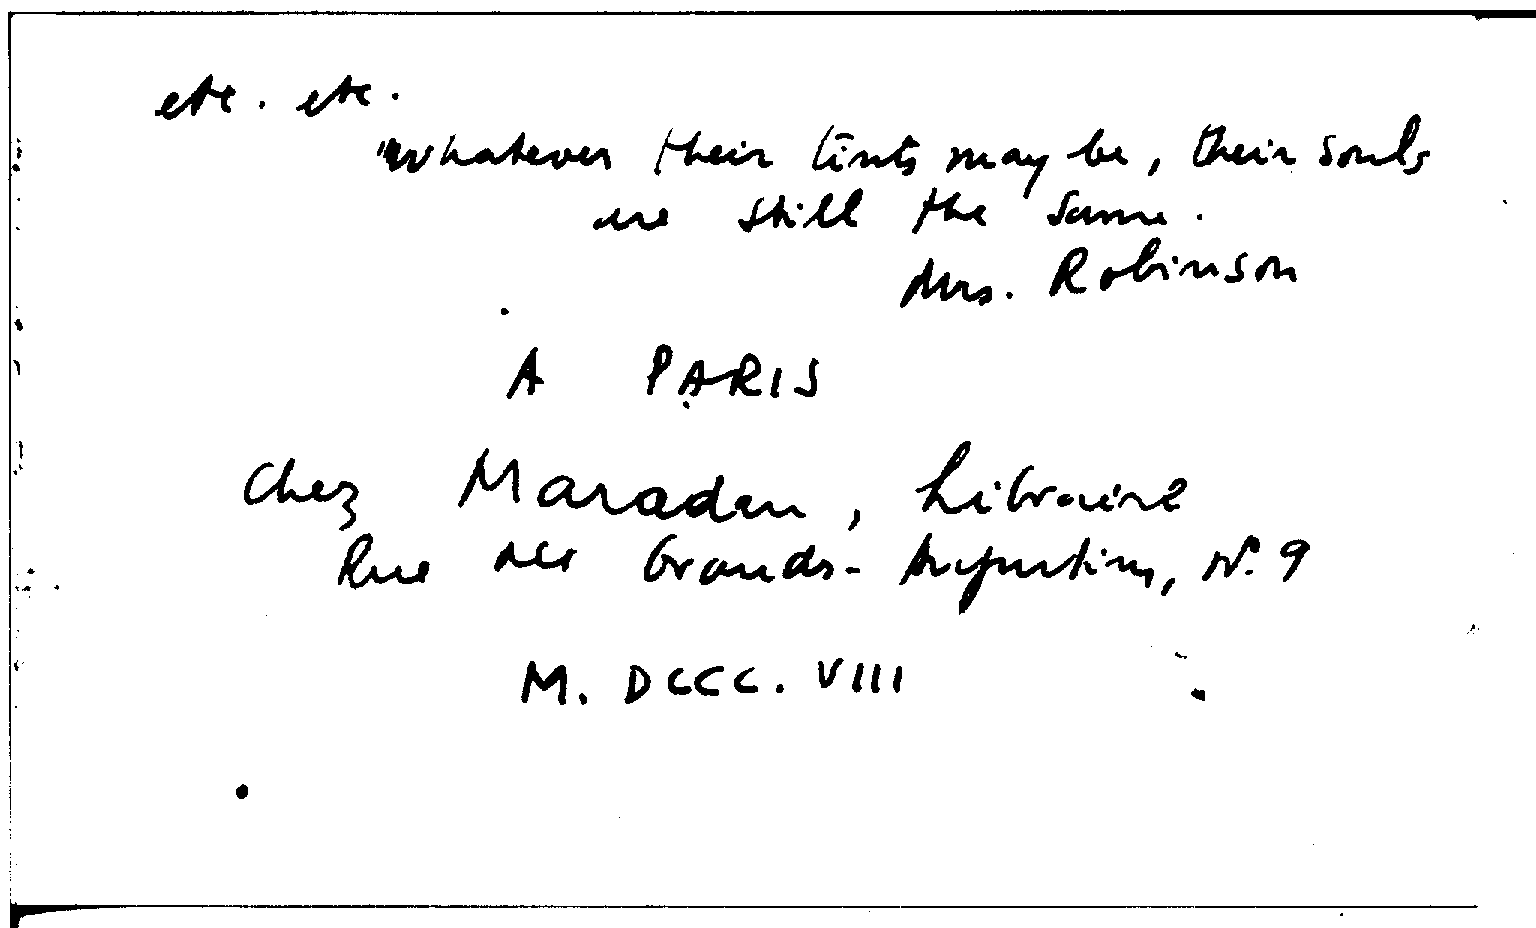 etc. etc.
Whatever their tints may be, their souls
are still the same.
Mrs. Robinson
A PARIS
Chez Maradan, Libraire
Rue des Grands-Augustins, N. 9
M. DCCC. VIII